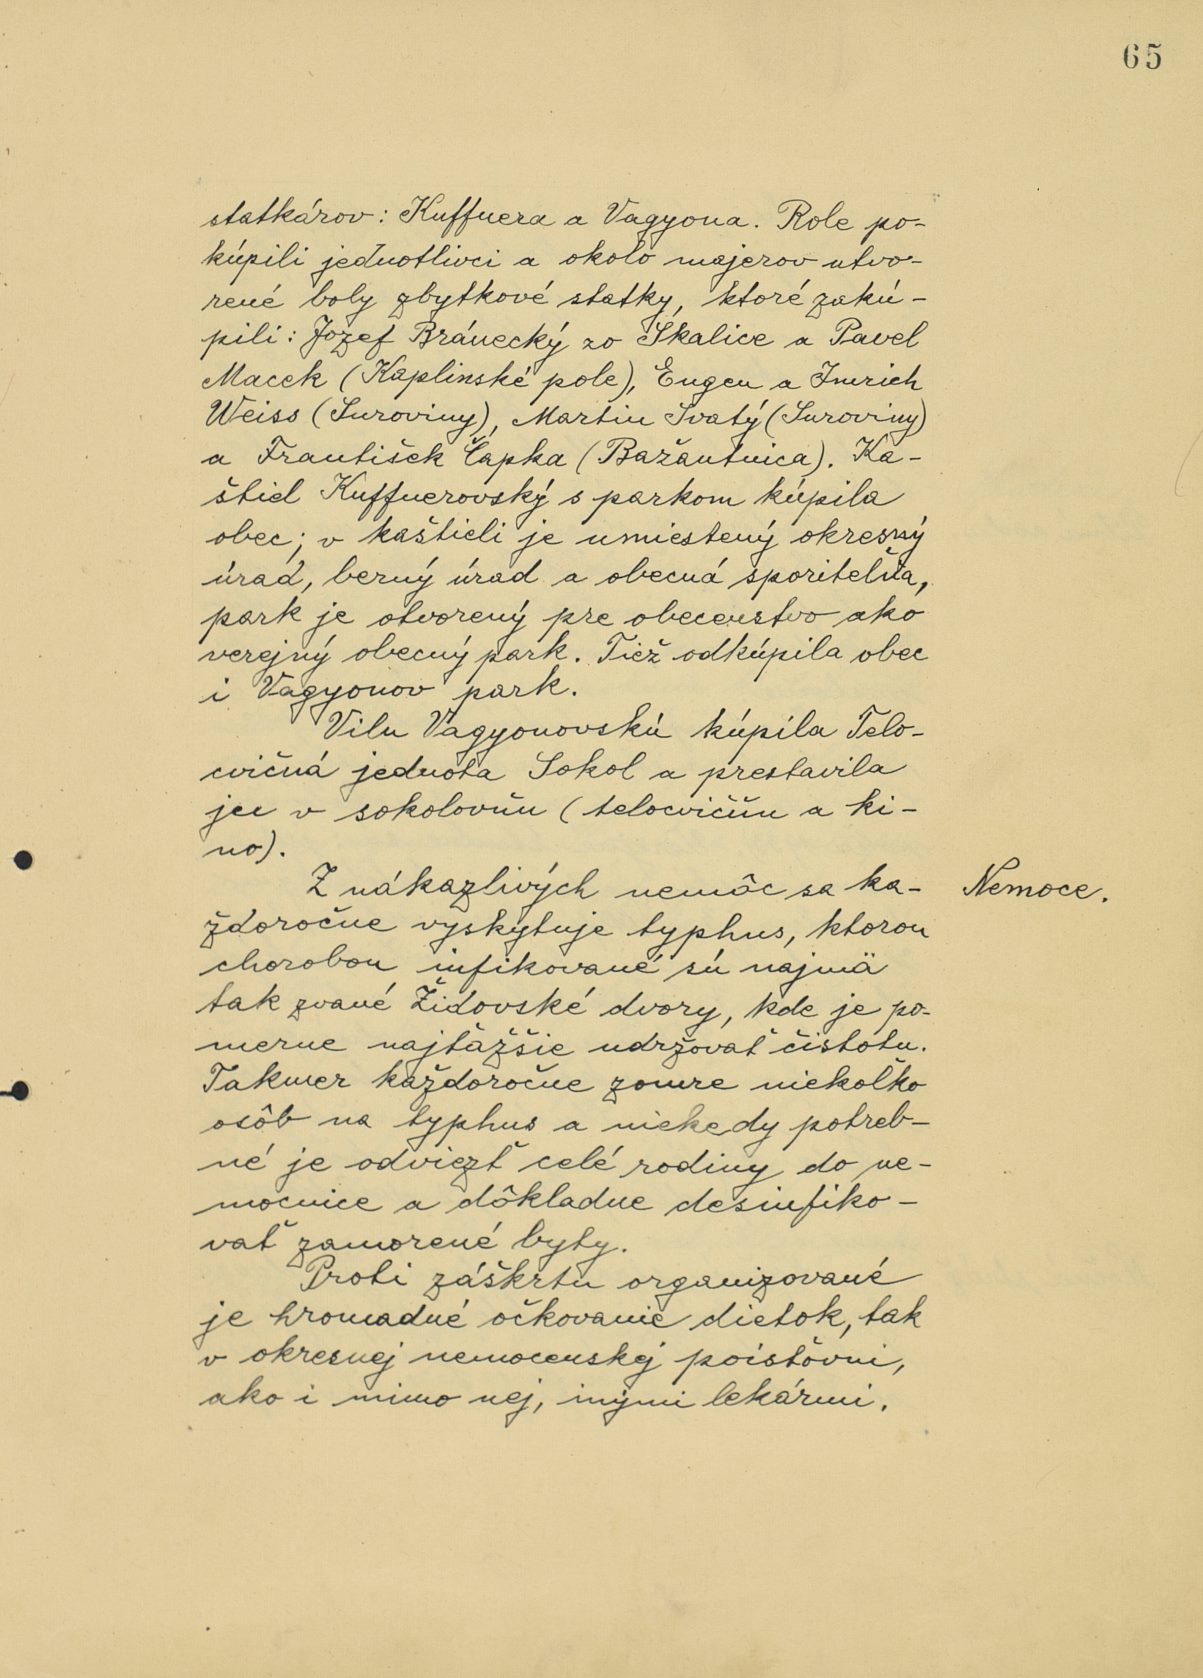 65
statkárov: Kuffnera a Vagyona. Role po-
kúpili jednotlivci a okolo majerov utvo-
rené boly zbytkové statky, ktoré zakú-
pili: Jozef Bránecký zo Skalice a Pavel
Macek (Kaplinské pole), Eugen a Imrich
Weiss (Suroviny), Martin Svatý (Suroviny)
a František Čapka (Bažantnica). Ka-
štiel Kuffnerovský s parkom kúpila
obec; v kaštieli je umiestený okresný
úrad, berný úrad a obecná sporiteľňa,
park je otvorený pre obecenstvo ako
verejný obecný park. Tiež odkúpila obec
i Vagyonov park.
Vilu Vagyonovskú kúpila Telo-
cvičná jednota Sokol a prestavila
ju v sokolovňu (telocvičňu a ki-
no).
Z nákazlivých nemôc sa ka-
ždoročne vyskytuje typhus, ktorou
chorobou infikované sú najmä
tak zvané Židovské dvory, kde je po-
merne najťažšie udržovať čistotu.
Takmer každoročne zomre niekoľko
osôb na typhus a niekedy potreb-
né je odviezť celé rodiny do ne-
mocnice a dôkladne desinfiko-
vať zamorené byty.
Proti záškrtu organizované
je hromadné očkovanie dietok, tak
v okresnej nemocenskej poisťovni,
ako i mimo nej, inými lekármi.
Nemoce.